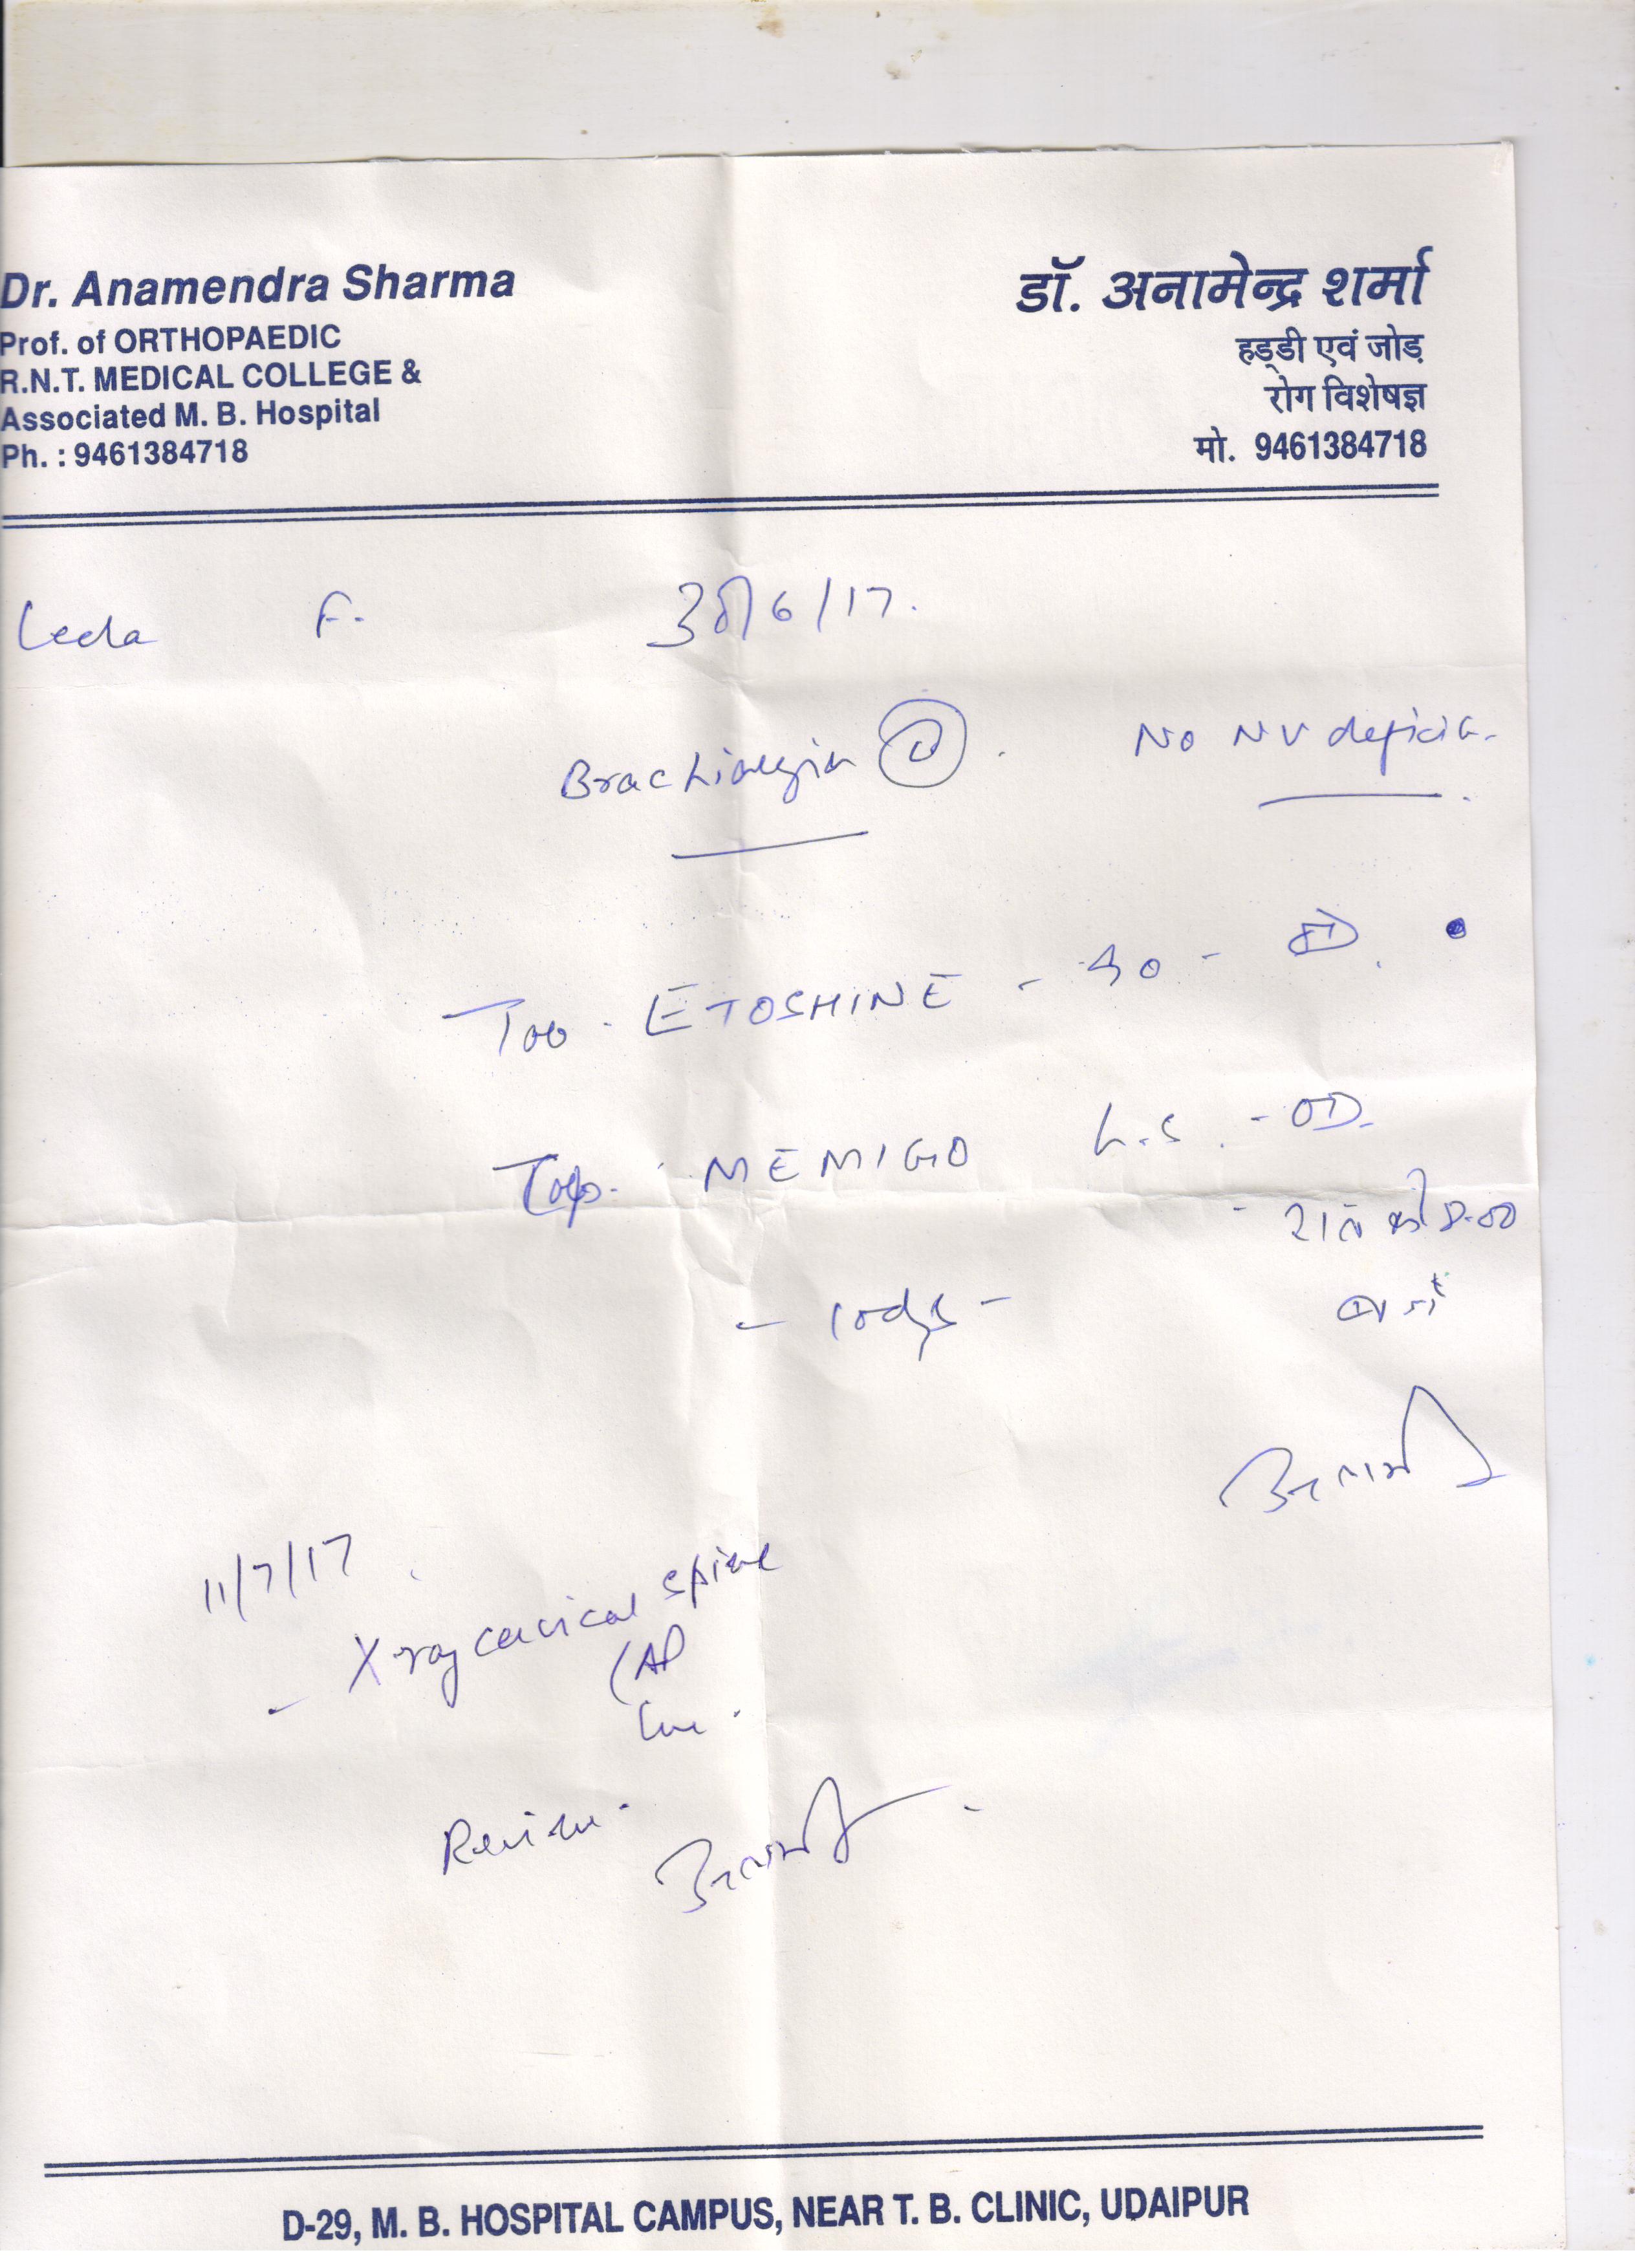 Dr. Anamendra Sharma
Prof. of ORTHOPAEDIC
R.N.T. MEDICAL COLLEGE &
Associated M. B. Hospital
Ph. : 9461384718
डॉ. अनामेन्द्र शर्मा
हड्डी एवं जोड़
रोग विशेषज्ञ
मो. 9461384718
Leela F. 30/6/17.
Brachialgia . No NV deficit.
Tab. ETOSHINE - 90 - OD.
Tab. MEMIGO L.S. - OD.
- रात को 8.00
बजे
- 10dys -
11/7/17
- X-ray cervical spine
(AP
Lat.
Review.
D-29, M. B. HOSPITAL CAMPUS, NEAR T. B. CLINIC, UDAIPUR